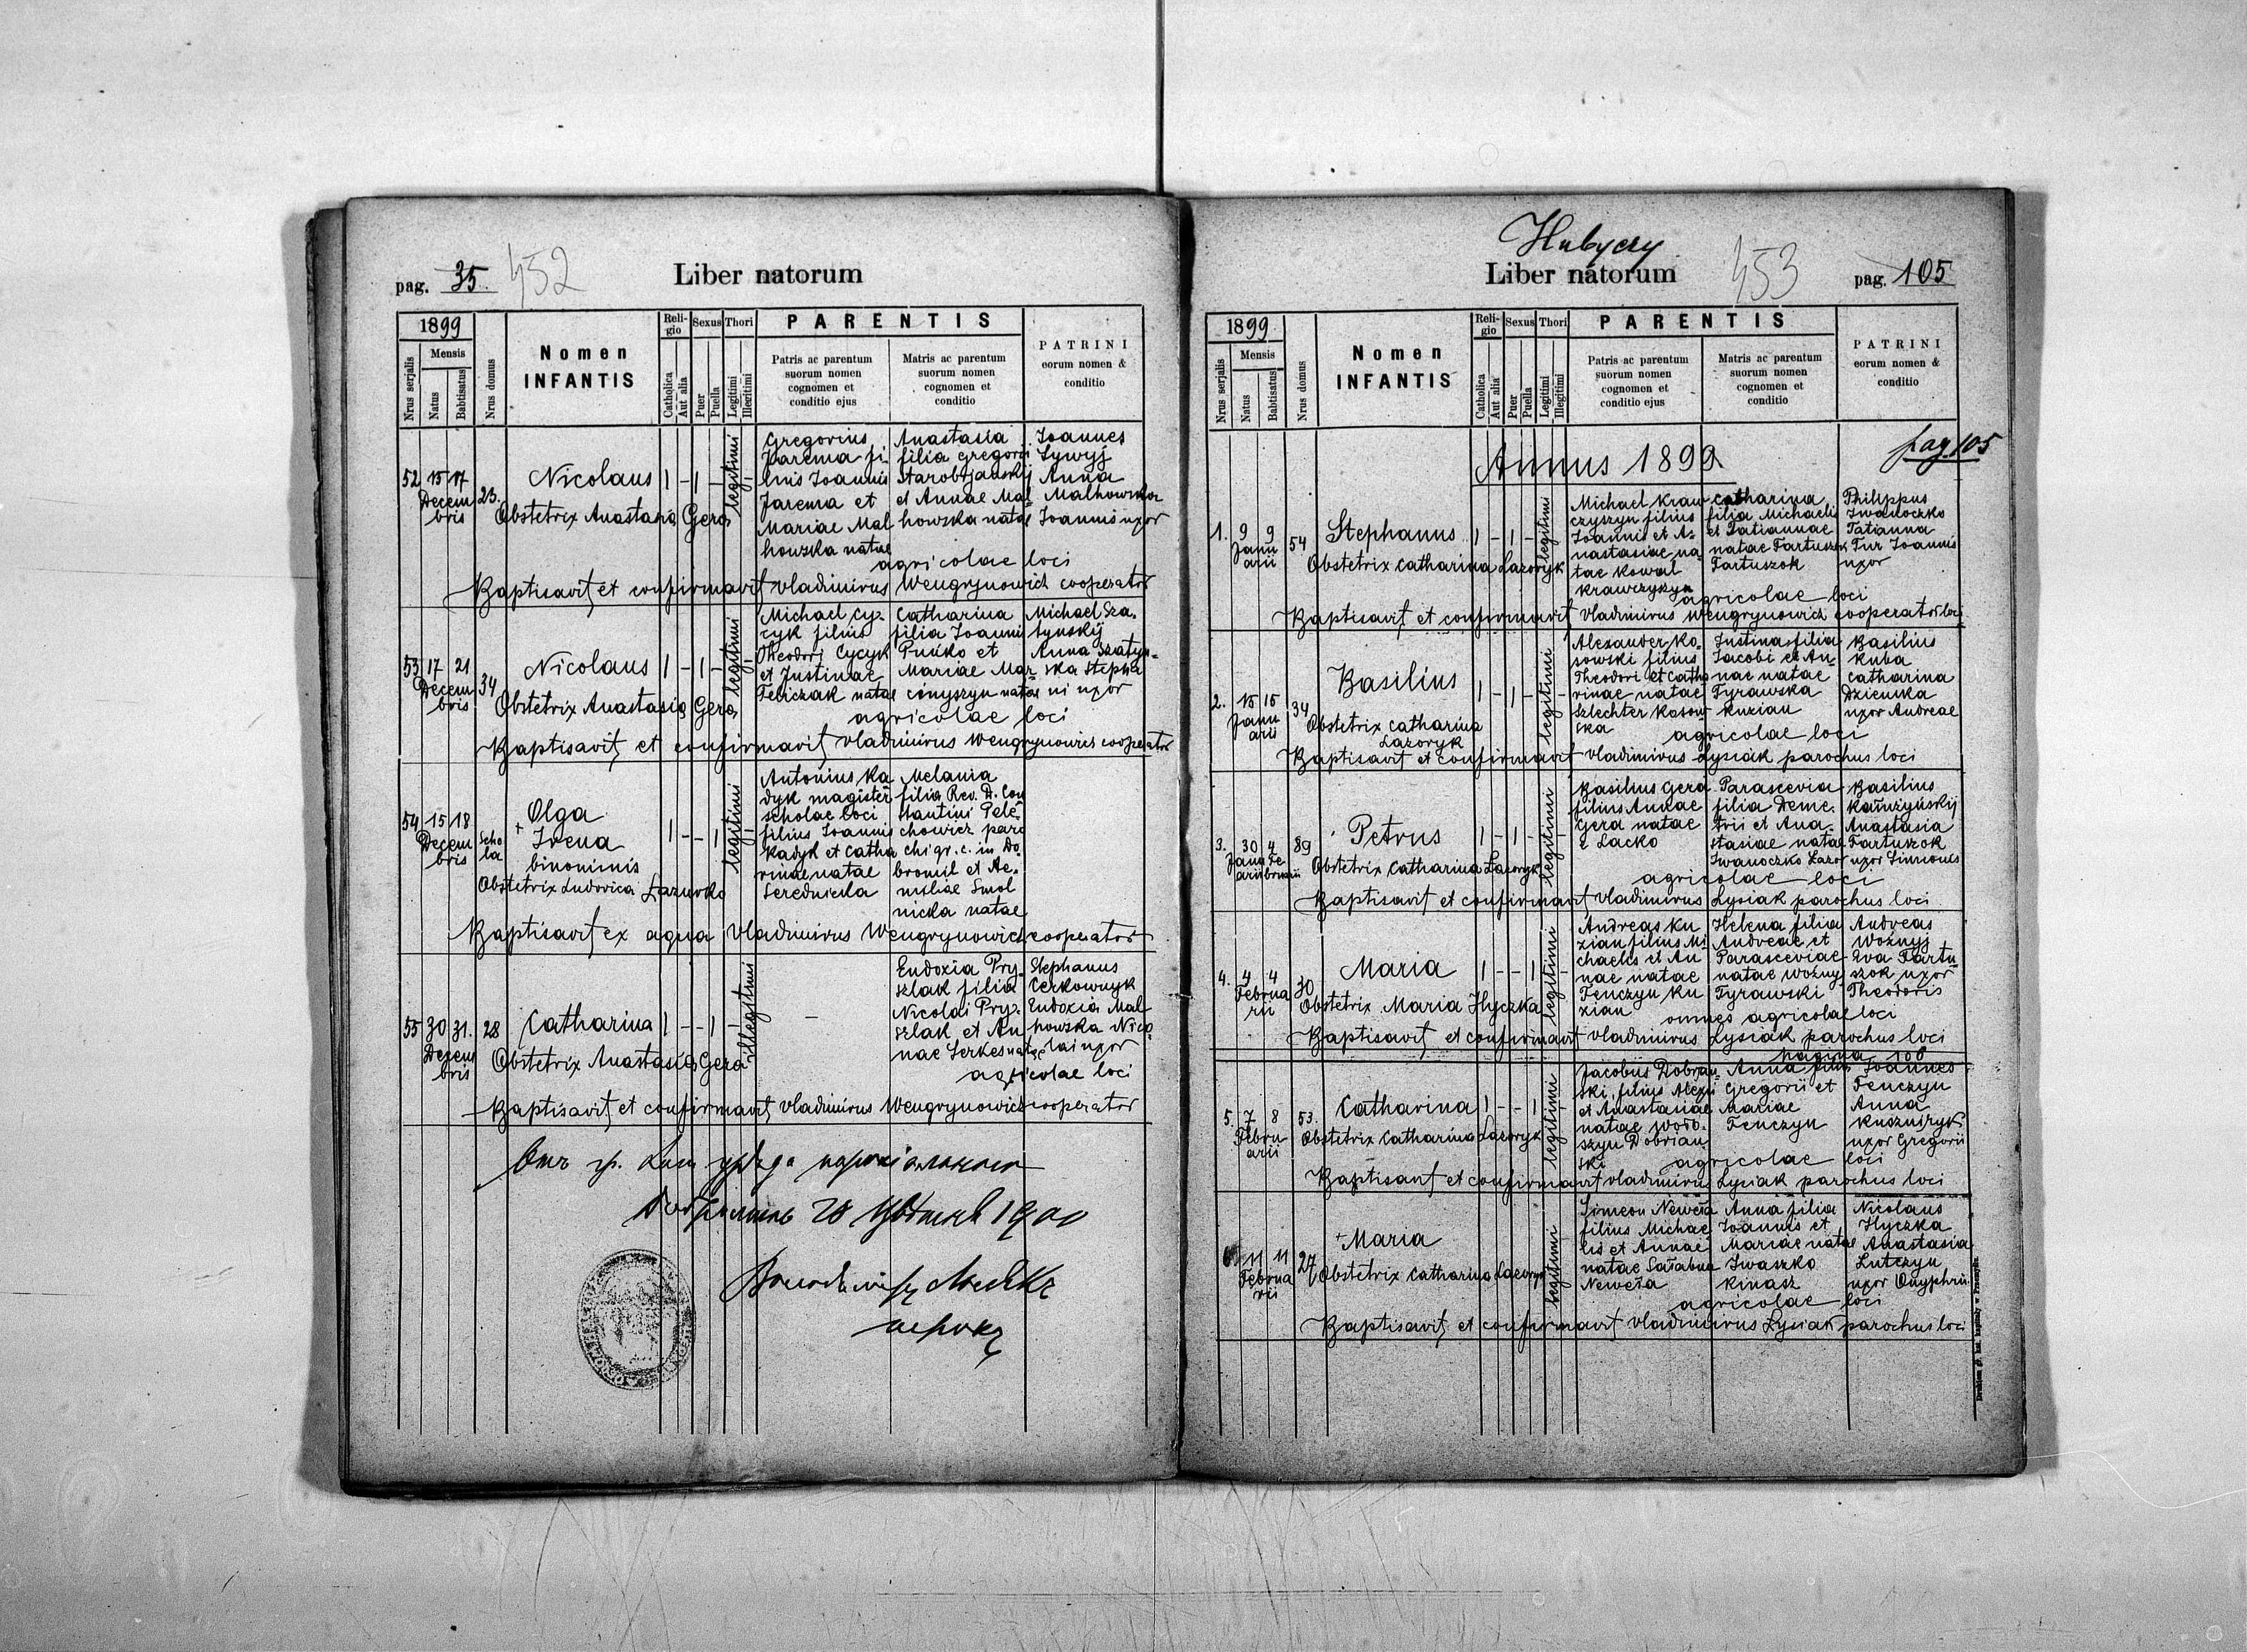 pag. 35. 452
Liber natorum
1899
Nrus serjalis
Mensis
Natus
Babtisatus
Nrus domus
Nomen
INFANTIS
Reli-
gio
Catholica
Aut alia
Sexus
Puer
Puella
Thori
Legitimi
Illegitimi
PARENTIS
Patris ac parentum
suorum nomen
cognomen et
conditio ejus
Matris ac parentum
suorum nomen
cognomen et
conditio
PATRINI
eorum nomen &
conditio
52 15 17
Decem
bris
23.
Nicolaus 1 - 1 -
Obstetrix Anastasia Gera
legitimi
Gregorius
Jarema fi-
lius Joannis
Jarema et
Mariae Mal
howska natae
Anastasia
filia Gregorii
Starobrjanskij
et Annae Mal-
howska natae
Joannes
Sywyj
Anna
Malhowska
Joannis uxor
agricolae loci
Baptisavit et confirmavit Vladimirus Wengrynowich cooperator
53 17 21
Decem
bris
34
Nicolaus 1 - 1 -
Obstetrix Anastasia Gera
legitimi
Michael Cy-
cyk filius
Theodori Cycyk
et Justinae
Fenczak natae
Catharina
filia Joannis
Puńko et
Mariae Mar-
cinyszyn natae
Michael Sza-
tynskij
Anna Szatyn-
ska Stepha
ni uxor
agricolae loci
Baptisavit et confirmavit Vladimirus Wengrynowich cooperator
54 15 18
Decem
bris
Scho
la
Olga
+ Irena
binominis
Obstetrix Ludovica Lazurko
1 - - 1
legitimi
Antonius Ka
dyk magister
scholae loci
filius Joannis
Kadyk et Catha
rinae natae
Serednicka
Melania
filia Rev. D. Con
stantini Pele-
chowicz paro
chi gr. c. in Do-
bromil et Ae-
miliae Smol
nicka natae
Baptisavit ex aqua Vladimirus Wengrynowich cooperator
55 30 31.
Decem
bris
28
Catharina 1 - - 1
Obstetrix Anastasia Gera
illegitimi
-
Eudoxia Pry-
szlak filia
Nicolai Pry-
szlak et An
nae Serkes natae
Stephanus
Cerkownyk
Eudoxia Mal
howska Nico
lai uxor
agricolae loci
Baptisavit et confirmavit Vladimirus Wengrynowich cooperator
1900
Hubyczy
Liber natorum
453
pag. 105
1899
Nrus serjalis
Mensis
Natus
Babtisatus
Nrus domus
Nomen
INFANTIS
Reli-
gio
Catholica
Aut alia
Sexus
Puer
Puella
Thori
Legitimi
Illegitimi
PARENTIS
Patris ac parentum
suorum nomen
cognomen et
conditio ejus
Matris ac parentum
suorum nomen
cognomen et
conditio
PATRINI
eorum nomen &
conditio
Annus 1899
pag. 105
1. 9 9
Janu
arii
54
Stephanus 1 - 1 -
Obstetrix Catharina Lazoryk
legitimi
Michael Kraw
czyszyn filius
Joannis et A-
nastasiae na-
tae Kowal
Krawczyszyn
Catharina
filia Michaelis
et Tatiannae
natae Tartuszok
Tartuszok
Philippus
Iwanoczko
Tatianna
Tur Joannis
uxor
agricolae loci
Baptisavit et confirmavit Vladimirus Wengrynowich cooperator loci
2. 15 15
Janu
arii
34
Basilius 1 - 1 -
Obstetrix Catharina
Lazoryk
legitimi
Alexander Ko-
sowski filius
Theodori et Catha
rinae natae
Szlechter Kosow
ska
Justina filia
Jacobi et An-
nae natae
Tyrawska
Kuzian
Basilius
Kuba
Catharina
Dziemka
uxor Andreae
agricolae loci
Baptisavit et confirmavit Vladimirus Lysiak parochus loci
3. 30 4
Janu Fe-
arii bruarii
89
Petrus 1 - 1 -
Obstetrix Catharina Lazoryk
legitimi
Basilius Gera
filius Annae
Gera natae
Lacko
Parascevia
filia Deme-
trii et Ana-
stasiae natae
Iwanoczko Lazor
Basilius
Kałuzyńskij
Anastasia
Tartuszok
uxor Simeonis
agricolae loci
Baptisavit et confirmavit Vladimirus Lysiak parochus loci
4. 4 4
Februa
rii
30
Maria 1 - - 1
Obstetrix Maria Hyczka
legitimi
Andreas Ku
zian filius Mi-
chaelis et An
nae natae
Fenczyn Ku
zian
Helena filia
Andreae et
Parasceviae
natae Woźny
Tyrawski
Andreas
Woźnyj
Eva Tartu-
szok uxor
Theodoris
omnes agricolae loci
Baptisavit et confirmavit Vladimirus Lysiak parochus loci
pagina 106
5. 7 8
Febru
arii
53.
Catharina 1 - - 1
Obstetrix Catharina Lazoryk
legitimi
Jacobus Dobrian-
ski, filius Alexii
et Anastasiae
natae Woło-
szyn Dobrian
ski
Anna filia
Gregorii et
Mariae
Fenczyn
Joannes
Fenczyn
Anna
Kuszniryk
uxor Gregorii
agricolae loci
Baptisavit et confirmavit Vladimirus Lysiak parochus loci
11 11
Februa
rii
27
+Maria
Obstetrix Catharina Lazoryk
legitimi
Simeon Neweła
filius Michae
lis et Annae
natae Sałabun
Neweła
Anna filia
Joannis et
Mariae natae
Iwaszko
Kinasz
Nicolaus
Hyczka
Anastasia
Lutczyn
uxor Onyphrii
agricolae loci
Baptisavit et confirmavit Vladimirus Lysiak parochus loci